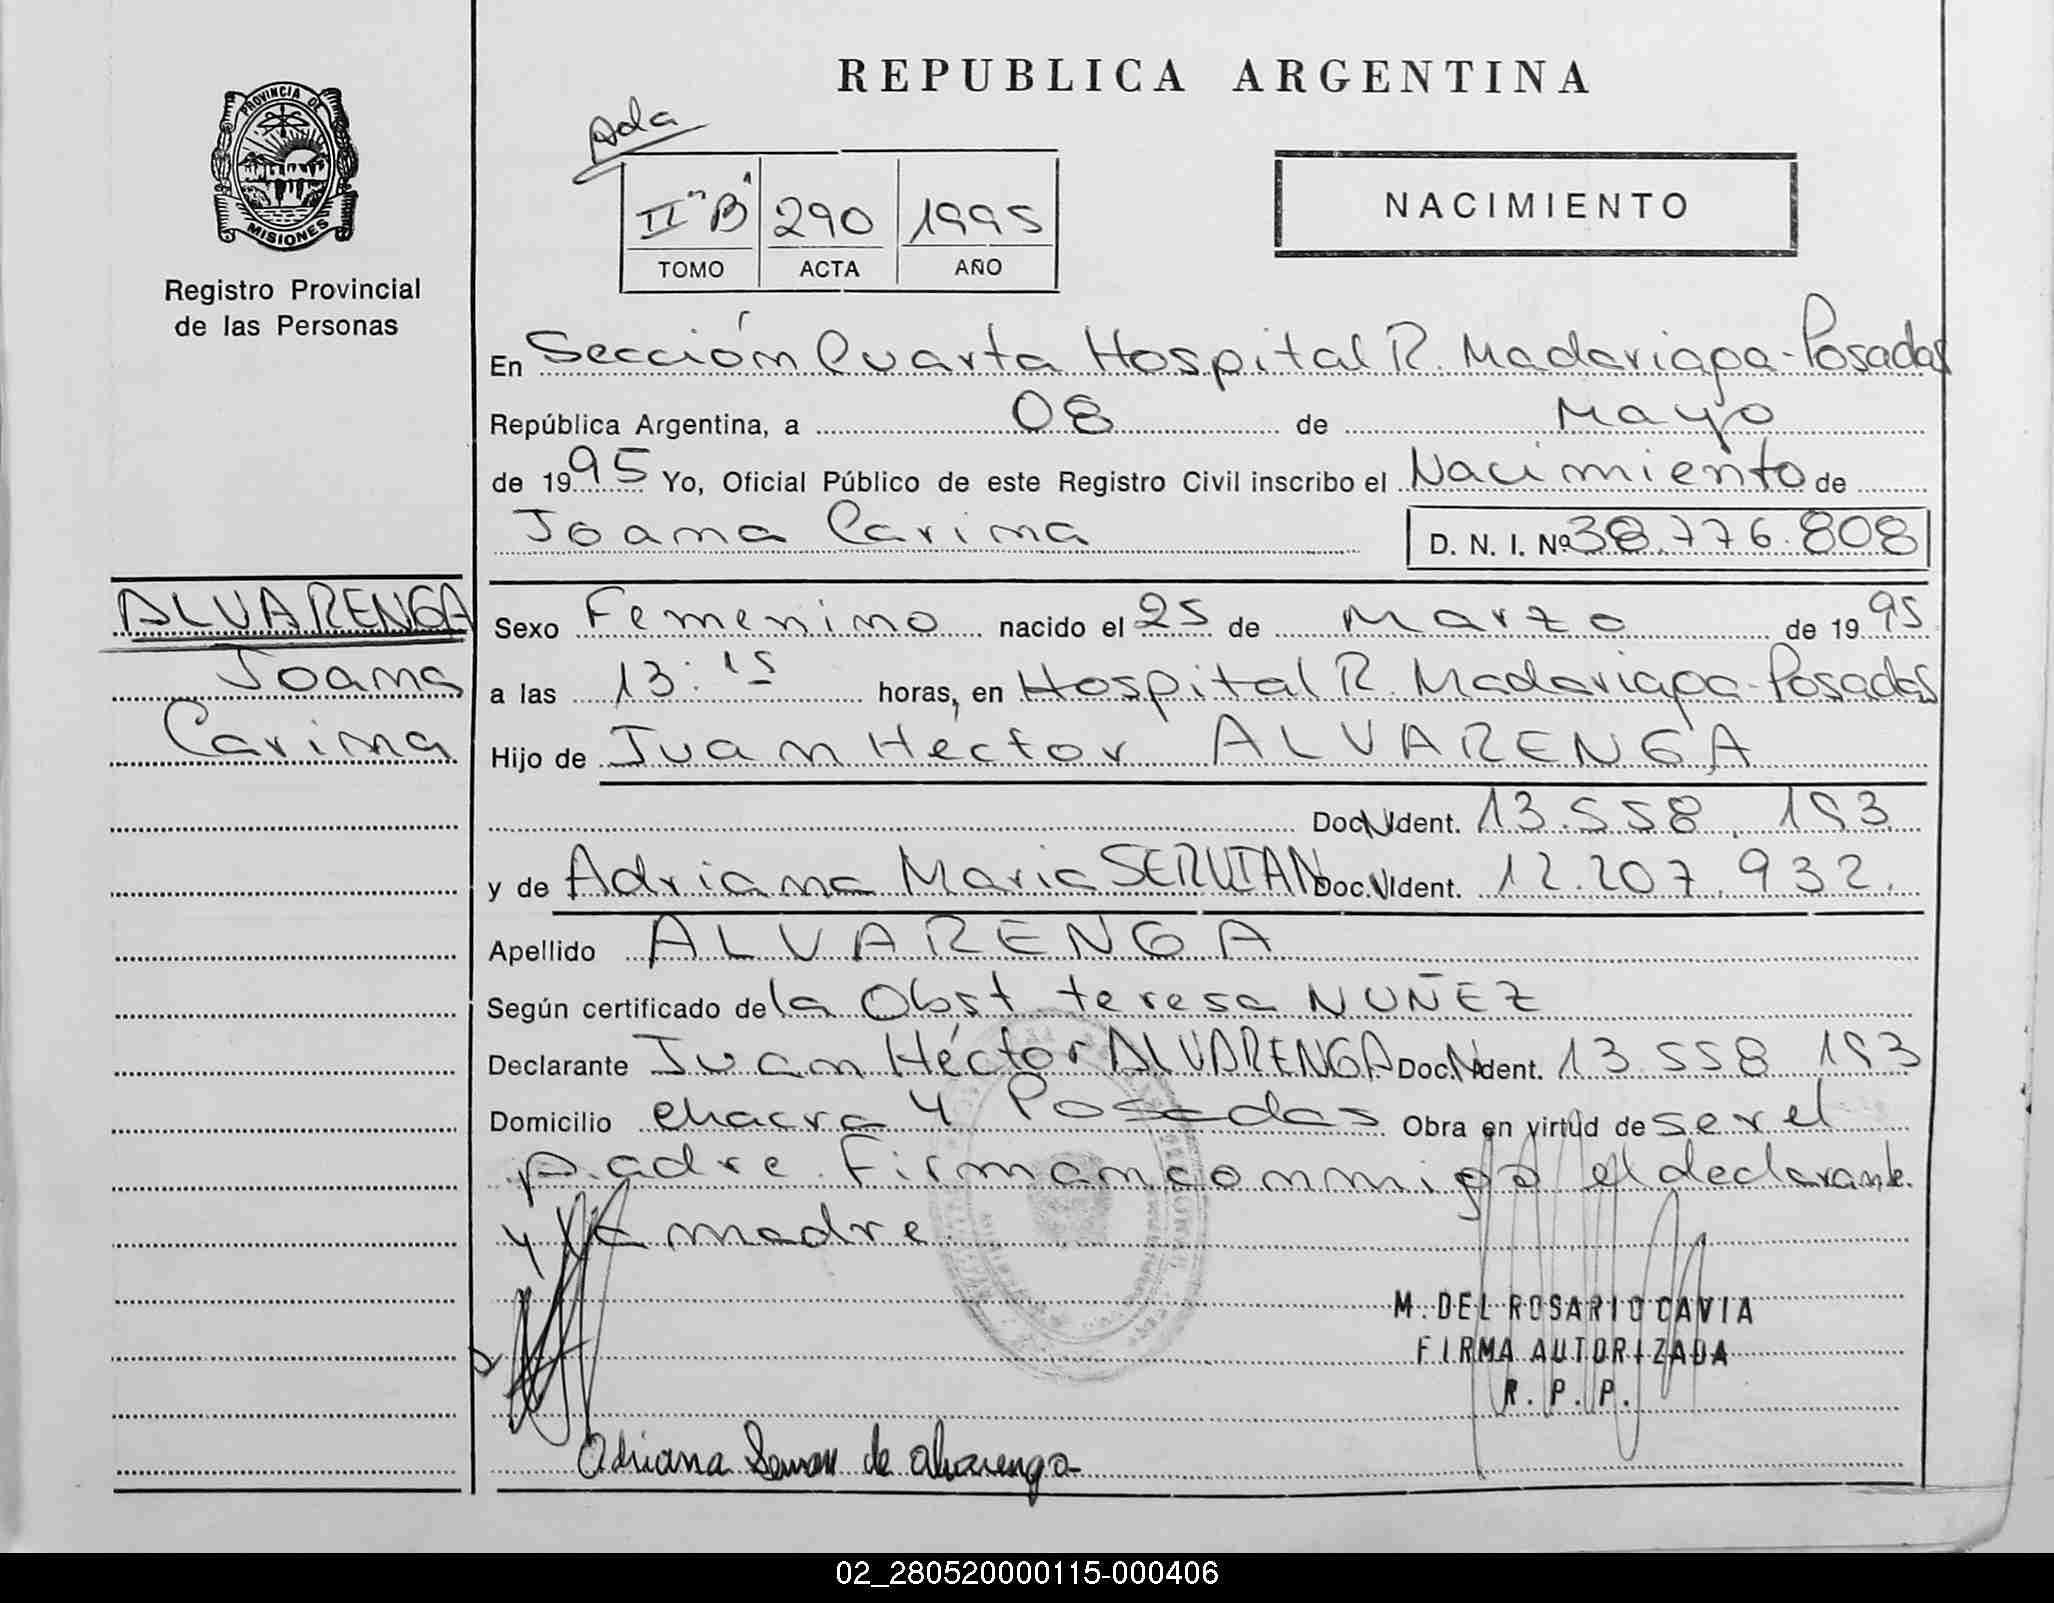 REPUBLICA ARGENTINA
PROVINCIA DE
MISIONES
Registro Provincial
de las Personas
Ada
II "B" 290 1995
TOMO ACTA AÑO
NACIMIENTO
En Sección Cuarta Hospital R. Madariaga-Posadas
República Argentina, a 08 de Mayo
de 1995 Yo, Oficial Público de este Registro Civil inscribo el Nacimiento de
Joana Carina D. N. I. Nº 38.776.808
ALVARENGA
Joana
Carina
Sexo Femenino nacido el 25 de Marzo de 1995
a las 13:15 horas, en Hospital R. Madariaga-Posadas
Hijo de Juan Héctor ALVARENGA
Doc. N. Ident. 13.558.153
y de Adriana Maria Doc. N. Ident. 12.207.932.
Apellido ALVARENGA
Según certificado de la Obst teresa NUÑEZ
Declarante Juan Héctor ALVARENGA Doc. N. Ident. 13.558.153
Domicilio chacra 4 Posadas Obra en virtud de ser el
padre. Firman conmigo el declarante
y la madre
M. DEL ROSARIO CAVIA
FIRMA AUTORIZADA
R. P. P.
Adriana de Alvarenga
02_280520000115-000406